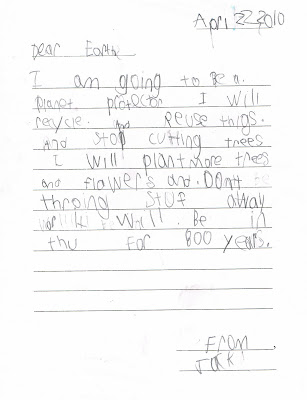 April 22 2010
Dear Earth
I am going to Be a.
Planet. protector I Will
recycle. and Reuse things.
And stop cutting trees
I Will plant more trees
and flowers and. Don't be
throing stuf away
it Will. Be in
thu For 800 years.
From.
Jack